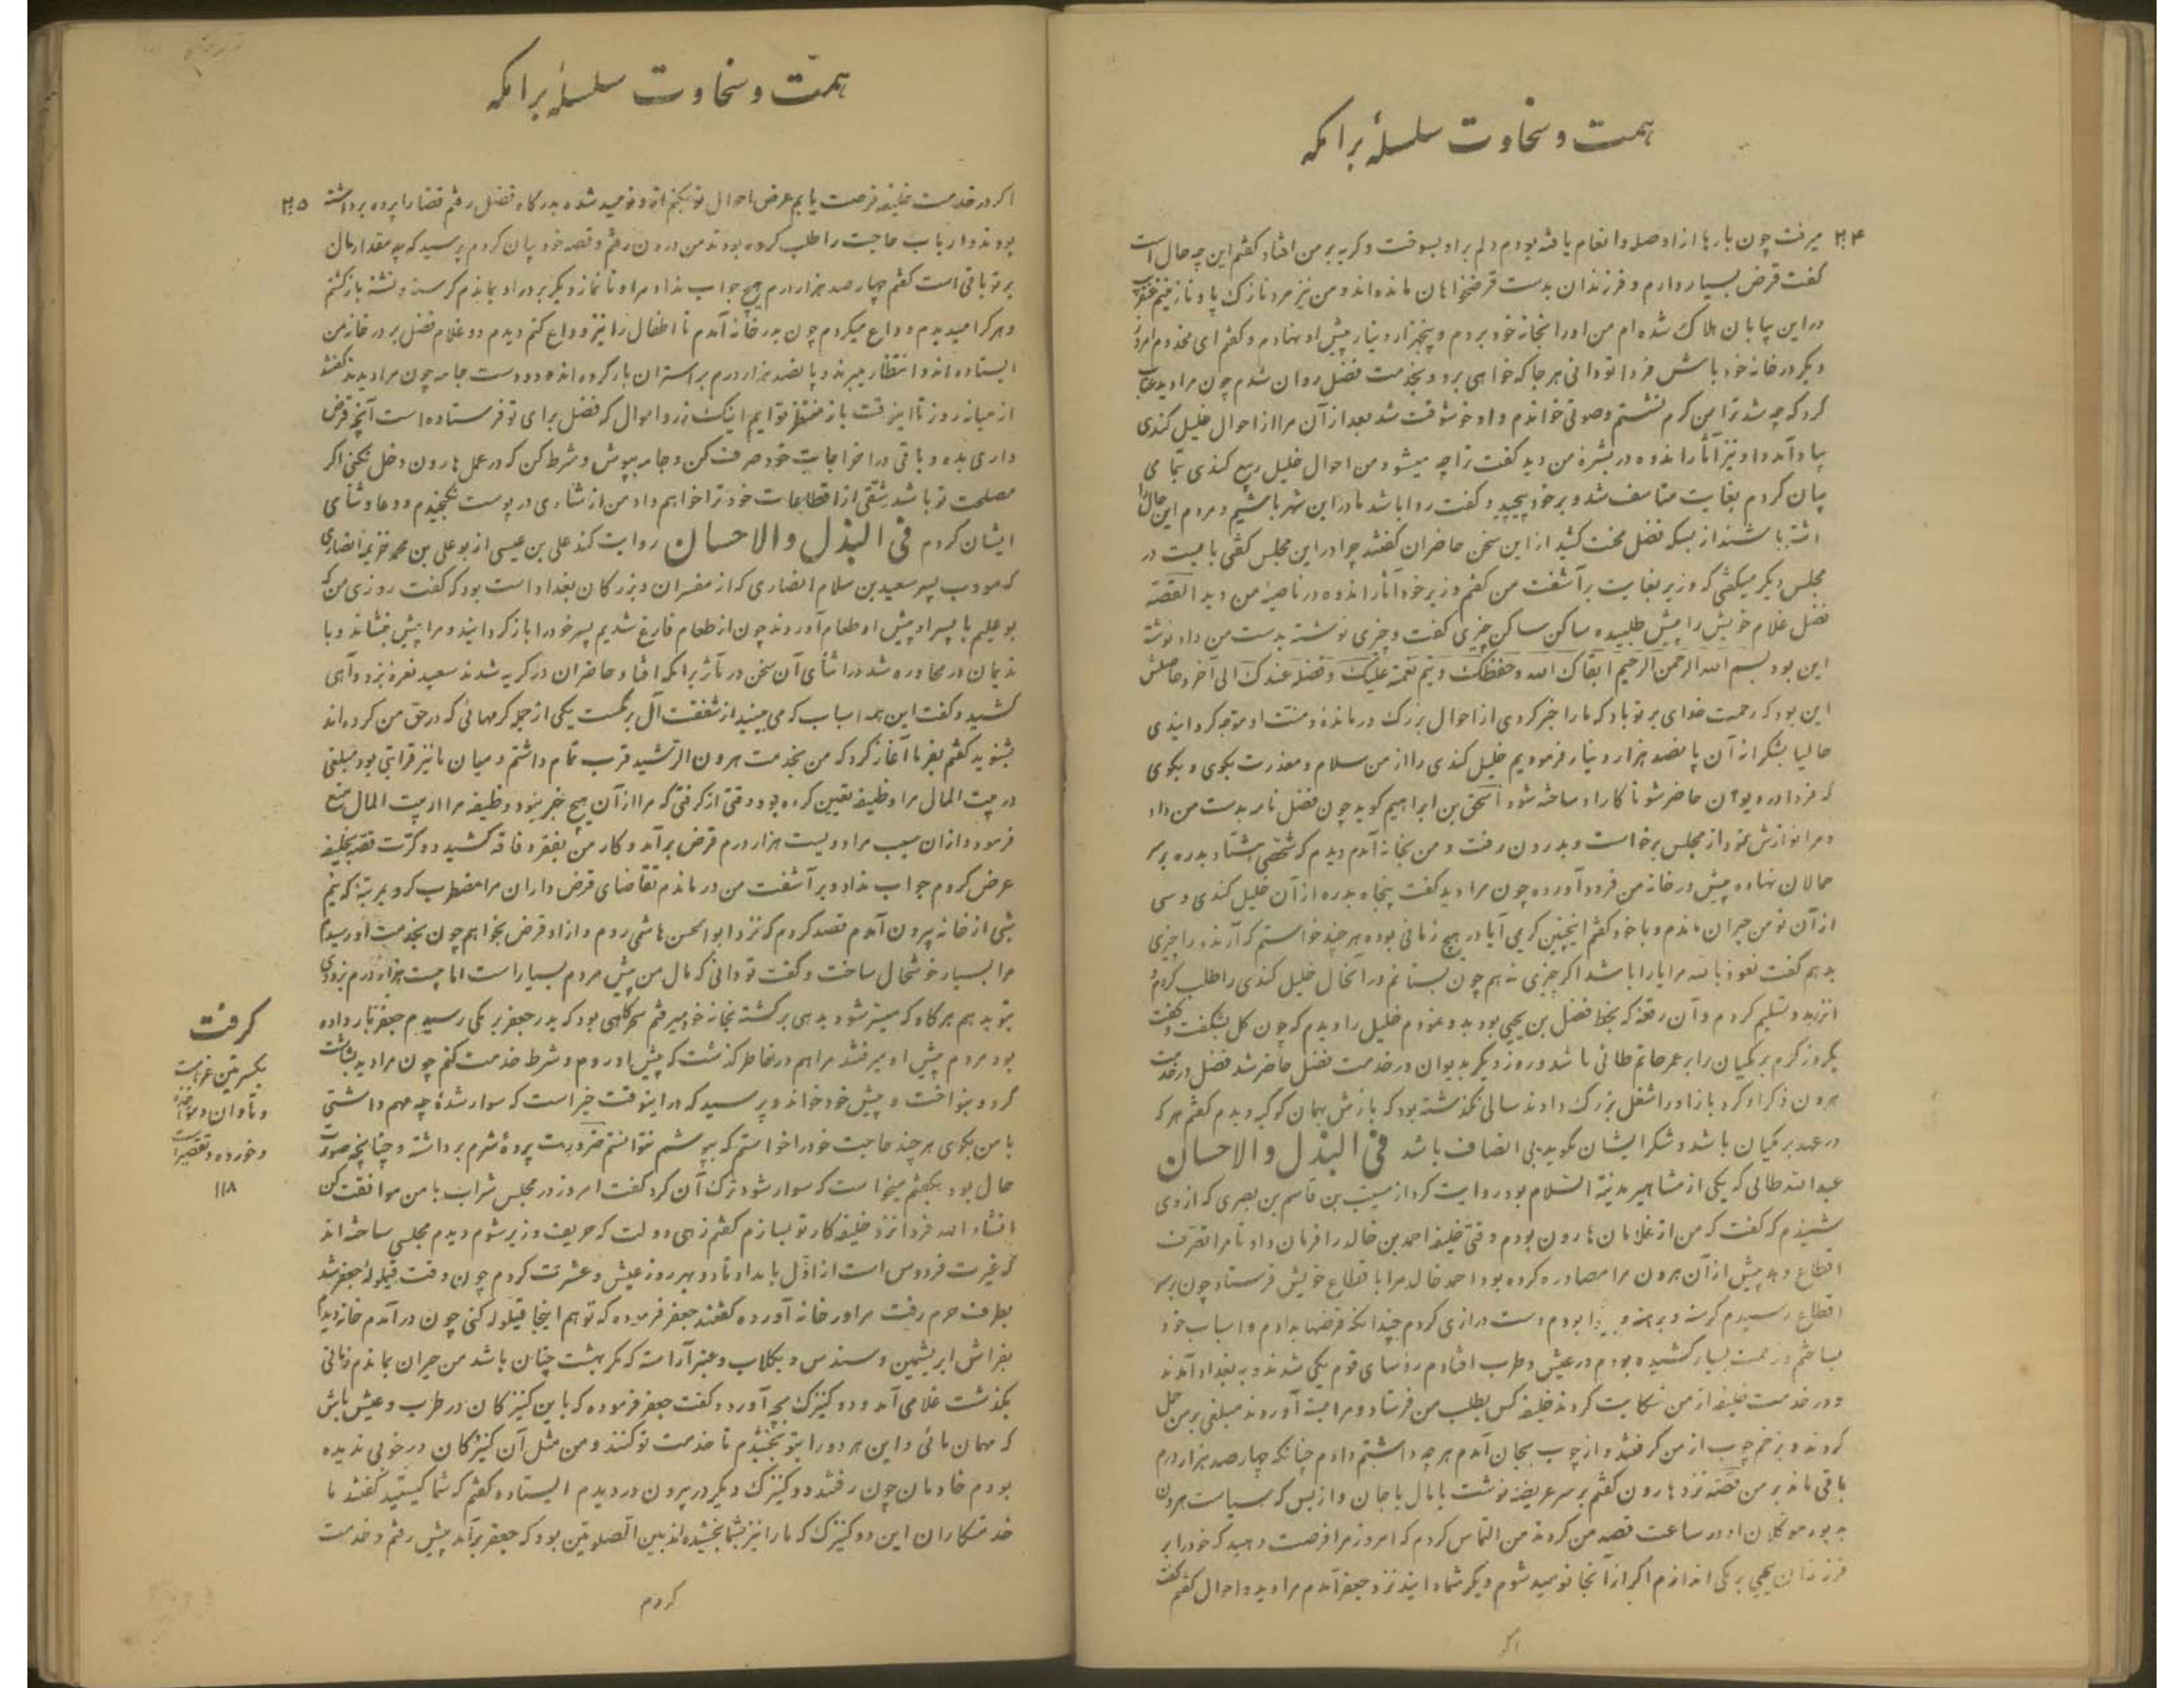 همت و سخاوت سلسلهٔ برامکه
۲۰۴
میرفت چون بارها از او صله و انعام یافته بودم دلم براد بسوخت و کریه بر من افتاد کفتم این چه حال است
کفت قرض بسیار دارم و فرزندان بدست قرضخواهان مانده‌اند و من نیز مرد نازک پا و نازنینم
در این بیابان هلاک شده‌ام من او را بخانه خود بردم و پنجهزار دینار پیش او نهادم و کفتم ای مخدوم امروز
دیکر در خانه خود باش فردا تو دانی هر جا که خواهی برو و بخدمت فضل روان شدم چون مرا دید عتاب
کرد که چه شد ترا من کرم نشستم و صوتی خواندم و او خوشوقت شد بعد از آن مرا از احوال خلیل کندی
یاد آمد و او نیز آثار اندوه در بشرهٔ من دید کفت ترا چه میشود من احوال خلیل ربیع کندی بتمامی
بیان کردم بغایت متاسف شد و بر خود پیچید و کفت روا باشد ما در این شهر باشیم و مردم این حال را
داشته باشند از بسکه فضل سخت کشید از این سخن حاضران کفتند چرا در این مجلس کفتی بایست در
مجلس دیکر میکفتی که وزیر بغایت برآشفت من کفتم وزیر خود آثار اندوه در ناصیهٔ من دید القصه
فضل غلام خویش را پیش طلبیده ساکن ساکن چیزی کفت و چیزی نوشته بدست من داد نوشته
این بود بسم الله الرحمن الرحیم ابقاک الله وحفظک ویتم نعمته علیک وفضله عندک الی آخر و حاصلش
این بود که رحمت خدای بر تو باد که ما را خبر کردی از احوال بزرک درمانده و منت او متوجه کردانیدی
حالیا بشکر از آن پانصد هزار دینار فرمودیم خلیل کندی را از من سلام و معذرت بکوی و بکوی
که فردا در دیوان حاضر شو تا کار او ساخته شود اسحق بن ابراهیم کوید چون فضل نامه بدست من داد
و مرا نوازش نمود از مجلس برخاست و بدرون رفت و من بخانه آمدم دیدم که شخصی هشتاد بدره بر سر
حمالان نهاده پیش در خانه من فرود آورده چون مرا دید کفت پنجاه بدره از آن خلیل کندی و سی
از آن تو من حیران ماندم و با خود کفتم اینچنین کریمی آیا در هیچ زمانی بوده هر چند خواستم که آرنده را چیزی
بدهم کفت نعوذ بالله مرا یارا باشد اکر چیزی نه هم چون بستانم در آنحال خلیل کندی را طلب کردم و
آنزر بدو تسلیم کردم و آن رقعه که بخط فضل بن یحیی بود بدو نمودم خلیل را دیدم که چون کل بشکفت و کفت
یکروز کرم برمکیان برابر عمر حاتم طائی باشد و روز دیکر بدیوان در خدمت فضل حاضر شد فضل در خدمت
هرون ذکر او کرد باز او را شغل بزرک دادند سالی نکذشته بود که بازش بهمان کوکبه دیدم کفتم هر که
در عهد برمکیان باشد و شکر ایشان نکوید بی انصاف باشد فی البذل والاحسان
عبدالله طائی که یکی از مشاهیر مدینة السلام بود روایت کرد از مسیب بن قاسم بن بصری که از وی
شنیدم که کفت که من از غلامان هارون بودم وقتی خلیفه احمد بن خالد را فرمان داد تا مرا تصرف
اقطاع دهد پیش از آن هرون مرا مصادره کرده بود احمد خالد مرا با قطاع خویش فرستاد چون بر سر
اقطاع رسیدم کرسنه و برهنه و بودم دست درازی کردم چندانکه قرضها بدادم و اسباب خود
بساختم و زحمت بسیار کشیده بودم در عیش و طرب افتادم رؤسای قوم یکی شدند و به بغداد آمدند
و در خدمت خلیفه از من شکایت کردند خلیفه کس بطلب من فرستاد و مرا بسته آوردند مبلغی بر من حمل
کردند و بزخم چوب از من کرفتند و از چوب بجان آمدم هر چه داشتم دادم چنانکه چهار صد هزار درم
باقی ماند بر من قصه نزد هارون کفتم بر سر عریضه نوشت یا مال یا جان و از بس که سیاست هرون
بود موکلان او در ساعت قصه من کردند من التماس کردم که امروز مرا فرصت دهید که خود را بر
فرزندان یحیی برمکی اندازم اکر از آنجا نومید شوم دیکر شما دانید نزد جعفر آمدم مرا دید و احوال کفتم کفت
اکر
همت و سخاوت سلسلهٔ برامکه
۲۰۵
اکر در خدمت خلیفه فرصت یابم عرض احوال تو بکنم از او نومید شده بدرکاه فضل رفتم قضا را پرده برداشته
بودند و ارباب حاجت را طلب کرده بودند من درون رفتم و قصه خود بیان کردم پرسید که چه مقدار مال
بر تو باقی است کفتم چهار صد هزار درم هیچ جواب نداد مرا و تا نماز دیکر بر در او بماندم کرسنه و تشنه بازکشتم
و هر کرا میدیدم وداع میکردم چون بدر خانه آمدم تا اطفال را نیز وداع کنم دیدم دو غلام فضل بر در خانه من
ایستاده‌اند و انتظار میبرند و پانصد هزار درم بر استران بار کرده‌اند و دو دست جامه چون مرا دیدند کفتند
از میانه روز تا اینوقت باز منتظر توایم اینک زر و اموال که فضل برای تو فرستاده است آنچه قرض
داری بده و باقی در اخراجات خود صرف کن و جامه بپوش و شرط کن که در عمل هارون دخل نکنی اکر
مصلحت تو باشد شقی از اقطاعات خود ترا خواهم داد من از شادی در پوست نکنجیدم و دعا و ثنای
ایشان کردم فی البذل والاحسان روایت کند علی بن عیسی از بو علی بن محمد خزیمه انصاری
که مودب پسر سعید بن سلام انصاری که از مفسران و بزرکان بغداد است بود که کفت روزی من که
بوعلیم با پسر او پیش او طعام آوردند چون از طعام فارغ شدیم پسر خود را باز کردانید و مرا پیش بنشاند و با
ندیمان در محاوره شد در اثنای آن سخن در مآثر برامکه افتاد حاضران در کریه شدند سعید نعره بزد و آهی
کشید و کفت این همه اسباب که می بینید از شفقت آل برمکست یکی از جمله کرمهائی که در حق من کرده‌اند
بشنوید کفتم بفرما آغاز کرد که من بخدمت هرون الرشید قرب تمام داشتم و میان ما نیز قرابتی بود مبلغی
در بیت المال مرا وظیفه تعیین کرده بود وقتی از کرفتی که مرا از آن هیچ خبر نبود وظیفه مرا از بیت المال منع
فرمود و از آن سبب مرا دویست هزار درم قرض برآمد و کار من بفقر و فاقه کشید دو کرت قصه بخلیفه
عرض کردم جواب نداد و برآشفت من در ماندم تقاضای قرض داران مرا مضطرب کرد بمرتبهٔ که نیم
شبی از خانه بیرون آمدم قصد کردم که نزد ابو الحسن هاشمی روم و از او قرض بخواهم چون بخدمت او رسیدم
مرا بسیار خوشحال ساخت و کفت تو دانی که مال من پیش مردم بسیار است اما بیست هزار درم بزودی
بتو بدهم هر کاه که میسر شود بدهی برکشته بخانه خود میرفتم سحرکاهی بود که بدر جعفر برمکی رسیدم جعفر بار داده
بود مردم پیش او میرفتند مرا هم در خاطر کذشت که پیش او روم و شرط خدمت کنم چون مرا دید بشاشت
کرد و بنواخت و پیش خود خواند و پرسید که در اینوقت خیر است که سوار شدهٔ چه مهم داشتی
با من بکوی هر چند حاجت خود را خواستم که بپوشم نتوانستم ضرورت پردهٔ شرم برداشته و چنانچه صورت
حال بود بکفتم میخواست که سوار شود ترک آن کرد کفت امروز در مجلس شراب با من موافقت کن
انشاء الله فردا نزد خلیفه کار تو بسازم کفتم زهی دولت که حریف وزیر شوم دیدم مجلسی ساخته‌اند
که غیرت فردوس است از اول بامداد تا دو بهر روز عیش و عشرت کردم چون وقت قیلوله جعفر شد
بطرف حرم رفت مرا در خانه آورده کفتند جعفر فرموده که تو هم اینجا قیلوله کنی چون در آمدم خانه دیدم
بفراش ابریشمین و سندس و بکلاب و عنبر آراسته که مکر بهشت چنان باشد من حیران بماندم زمانی
بکذشت غلامی آمد و دو کنیزک بچه آورد و کفت جعفر فرموده که با این کنیزکان در طرب و عیش باش
که مهمان مائی و این هر دو را بتو بخشیدم تا خدمت تو کنند و من مثل آن کنیزکان در خوبی ندیده
بودم خادمان چون رفتند دو کنیزک دیکر در بیرون در دیدم ایستاده کفتم که شما کیستید کفتند ما
خدمتکاران این دو کنیزک که ما را نیز بشما بخشیده‌اند بین الصلوتین بود که جعفر برآمد پیش رفتم و خدمت
کردم
کرفت
و تاوان و مؤاخذه
و خورده و تقصیر است
۱۱۸